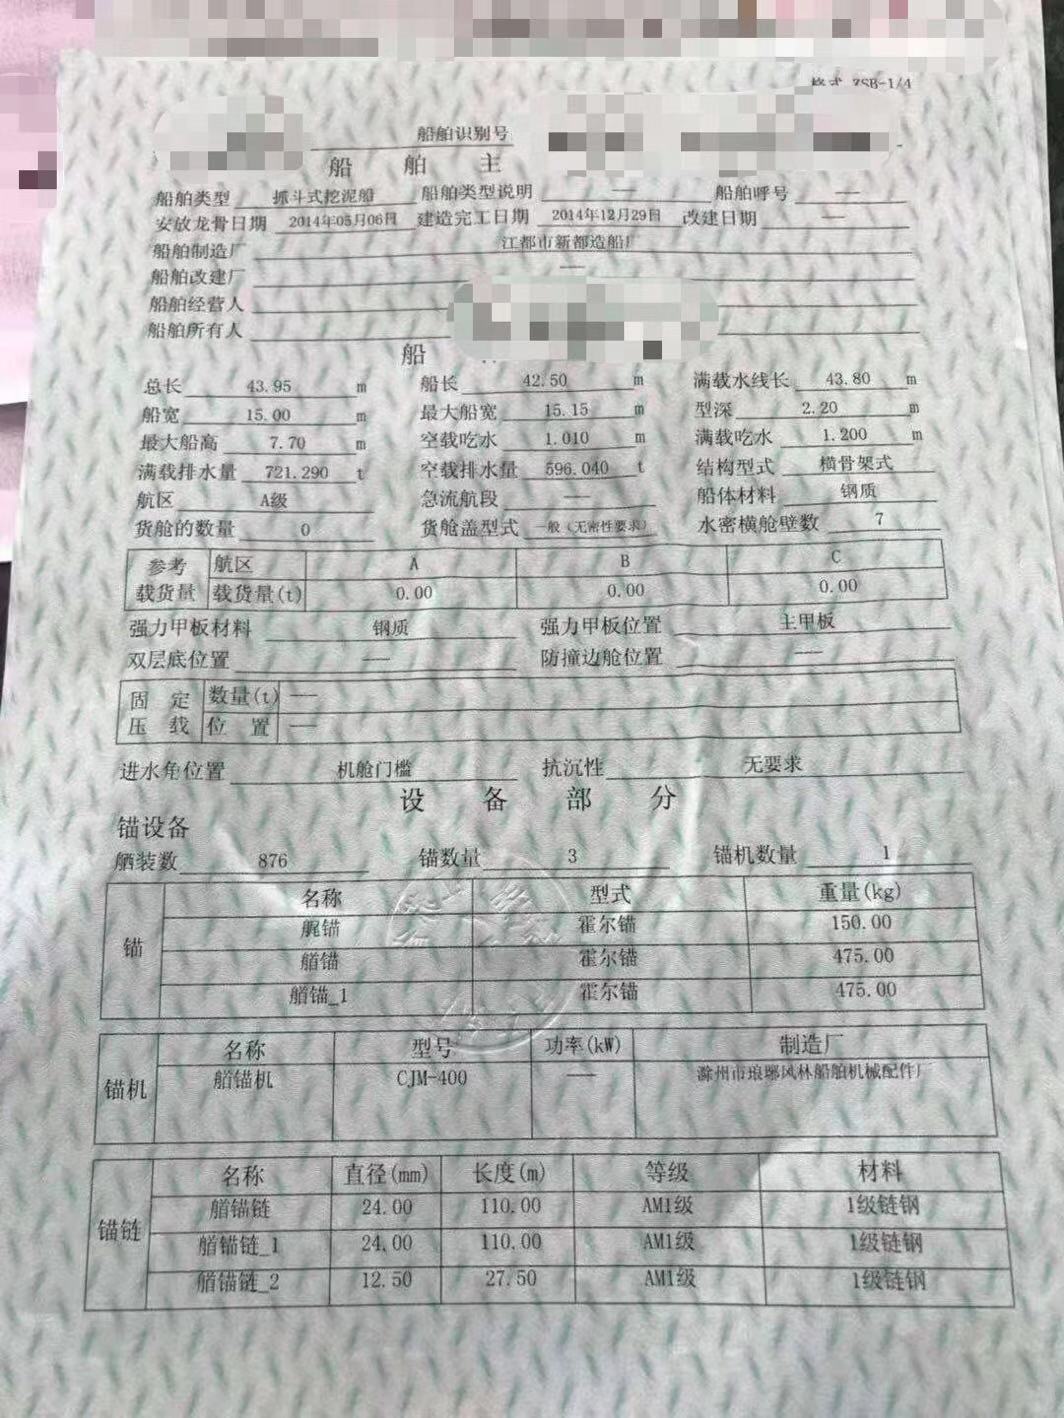 格式 ZSB-1/4
船舶识别号
船 舶 主
船舶类型 抓斗式挖泥船 船舶类型说明 —— 船舶呼号 ——
安放龙骨日期 2014年05月06日 建造完工日期 2014年12月29日 改建日期 ——
船舶制造厂 江都市新都造船厂
船舶改建厂 ——
船舶经营人
船舶所有人
船
总长 43.95 m 船长 42.50 m 满载水线长 43.80 m
船宽 15.00 m 最大船宽 15.15 m 型深 2.20 m
最大船高 7.70 m 空载吃水 1.010 m 满载吃水 1.200 m
满载排水量 721.290 t 空载排水量 596.040 t 结构型式 横骨架式
航区 A级 急流航段 —— 船体材料 钢质
货舱的数量 0 货舱盖型式 一般（无密性要求） 水密横舱壁数 7
参考载货量 航区 A B C
载货量(t) 0.00 0.00 0.00
强力甲板材料 钢质 强力甲板位置 主甲板
双层底位置 —— 防撞边舱位置 ——
固定压载 数量(t) ——
位置 ——
进水角位置 机舱门槛 抗沉性 无要求
设 备 部 分
锚设备
舾装数 876 锚数量 3 锚机数量 1
锚 名称 型式 重量(kg)
艉锚 霍尔锚 150.00
艏锚 霍尔锚 475.00
艏锚_1 霍尔锚 475.00
锚机 名称 型号 功率(kW) 制造厂
艏锚机 CJM-400 —— 滁州市琅琊风林船舶机械配件厂
锚链 名称 直径(mm) 长度(m) 等级 材料
艏锚链 24.00 110.00 AM1级 1级链钢
艏锚链_1 24.00 110.00 AM1级 1级链钢
艏锚链_2 12.50 27.50 AM1级 1级链钢